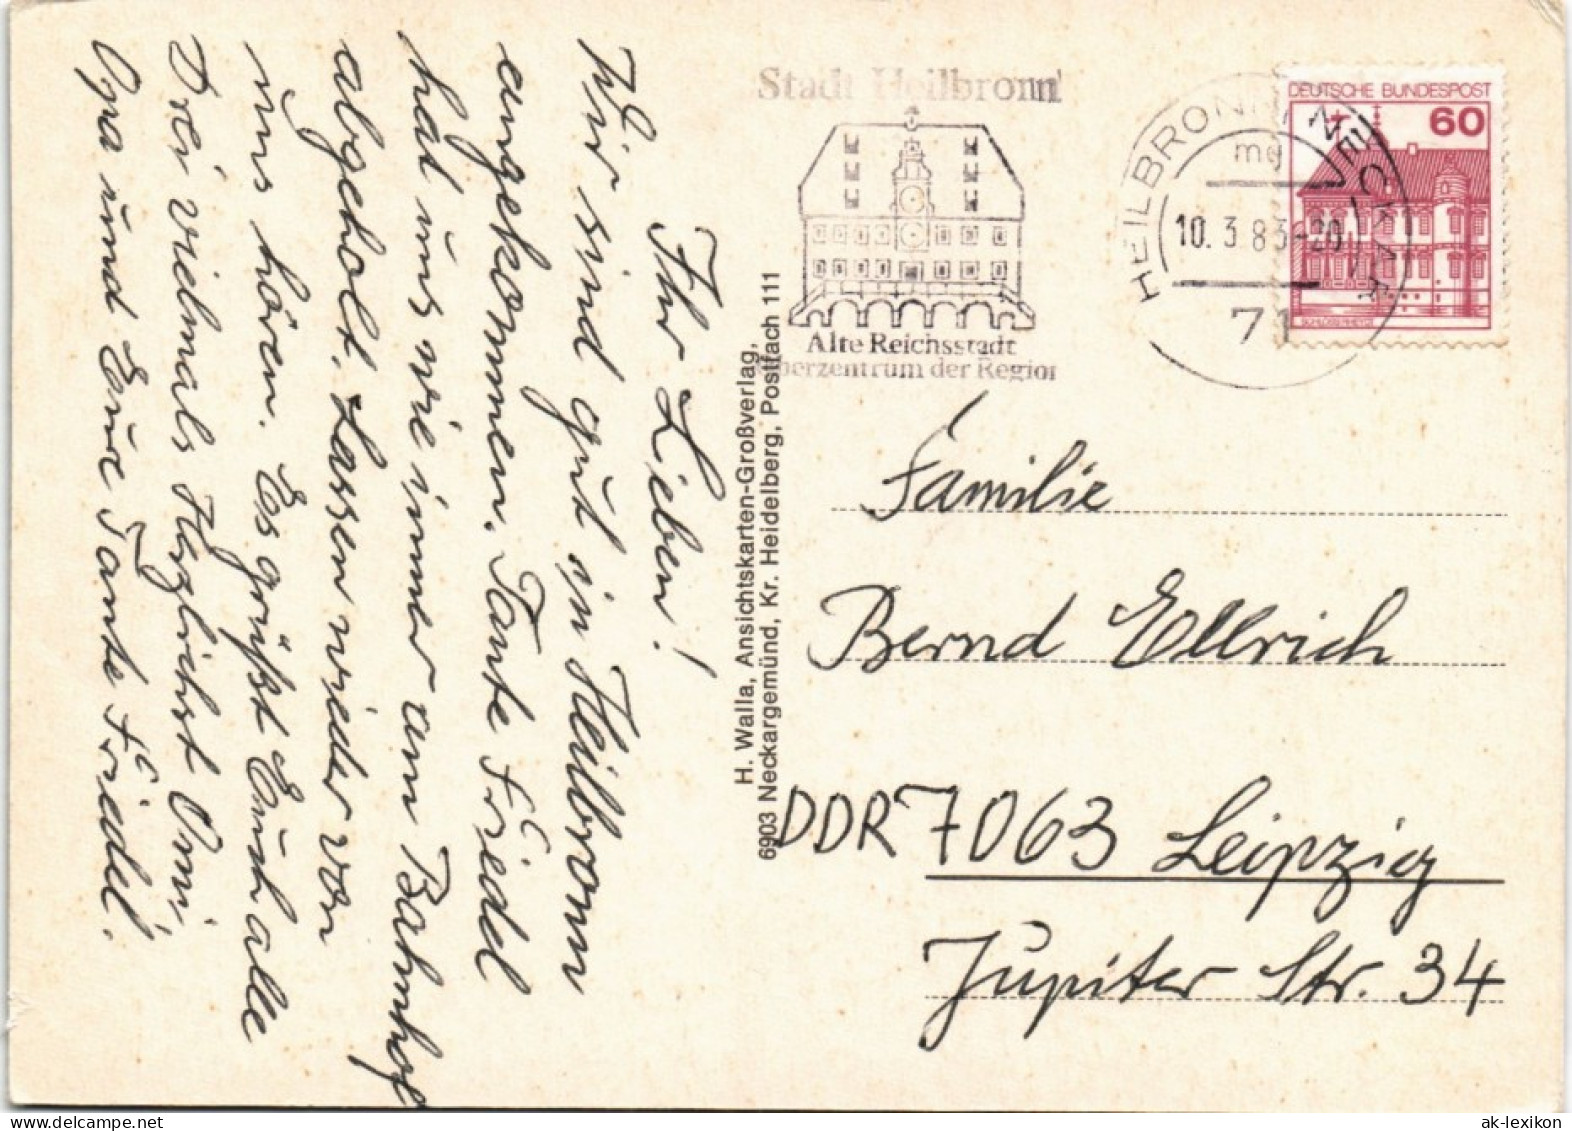 Ihr Lieben!
Wir sind gut in Heilbronn
angekommen. Tante Friedel
hat uns wie immer am Bahnhof
abgeholt. Lassen wieder von
uns hören. Es grüßt Euch alle
Drei vielmals Herzlichst Omi,
Opa und Eure Tante Friedel.
H. Walla, Ansichtskarten-Großverlag,
6903 Neckargemünd, Kr. Heidelberg, Postfach 111
Stadt Heilbronn
Alte Reichsstadt
Oberzentrum der Region
HEILBRONN, NECKAR
md
10. 3. 83-20
71
DEUTSCHE BUNDESPOST
60
SCHLOSS RHEYDT
Familie
Bernd Ellrich
DDR 7063 Leipzig
Jupiter Str. 34
ak-lexikon